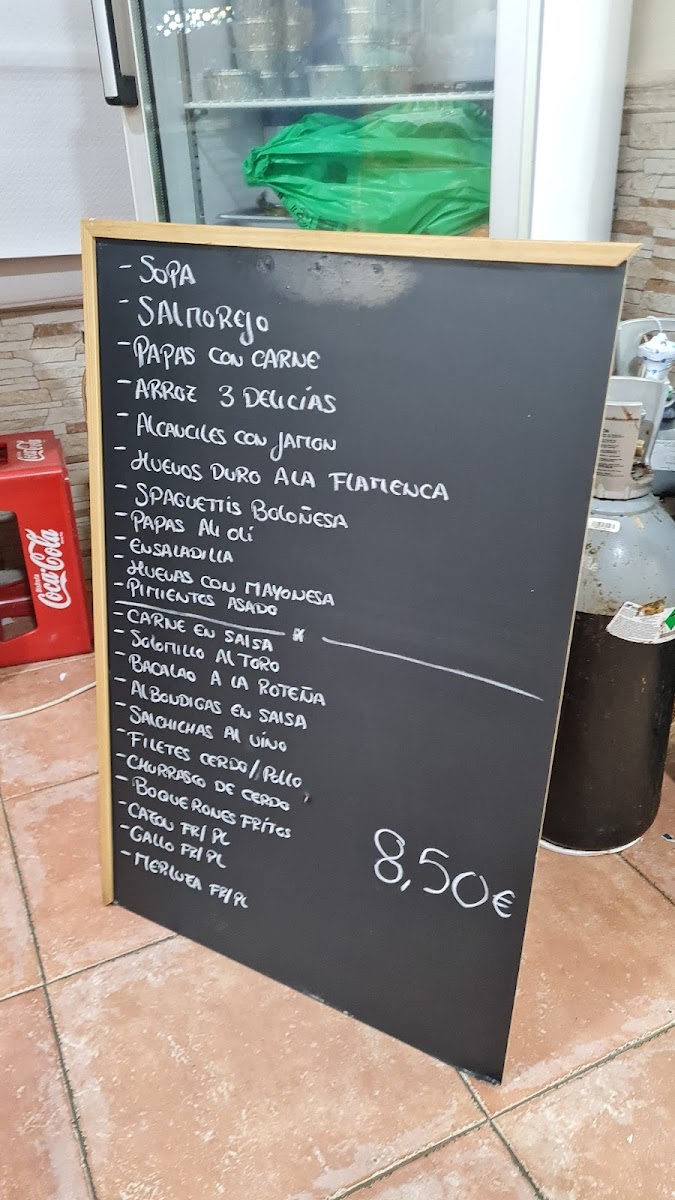 - SOPA
- SALMOREJO
- PAPAS CON CARNE
- ARROZ 3 DELICÍAS
- ALCAUCILES CON JAMON
- HUEVOS DURO A LA FLAMENCA
- SPAGUETTIS BOLOÑESA
- PAPAS ALI OLÍ
- ENSALADILLA
- HUEVAS CON MAYONESA
- PIMIENTOS ASADO
- CARNE EN SALSA
- SOLOMILLO AL TORO
- BACALAO A LA ROTEÑA
- ALBONDIGAS EN SALSA
- SALCHICHAS AL VINO
- FILETES CERDO/POLLO
- CHURRASCO DE CERDO
- BOQUERONES FRITOS
- CAZON FR/PL
- GALLO FR/PL
- MERLUZA FR/PL
8,50€
Coca-Cola
Coca-Cola